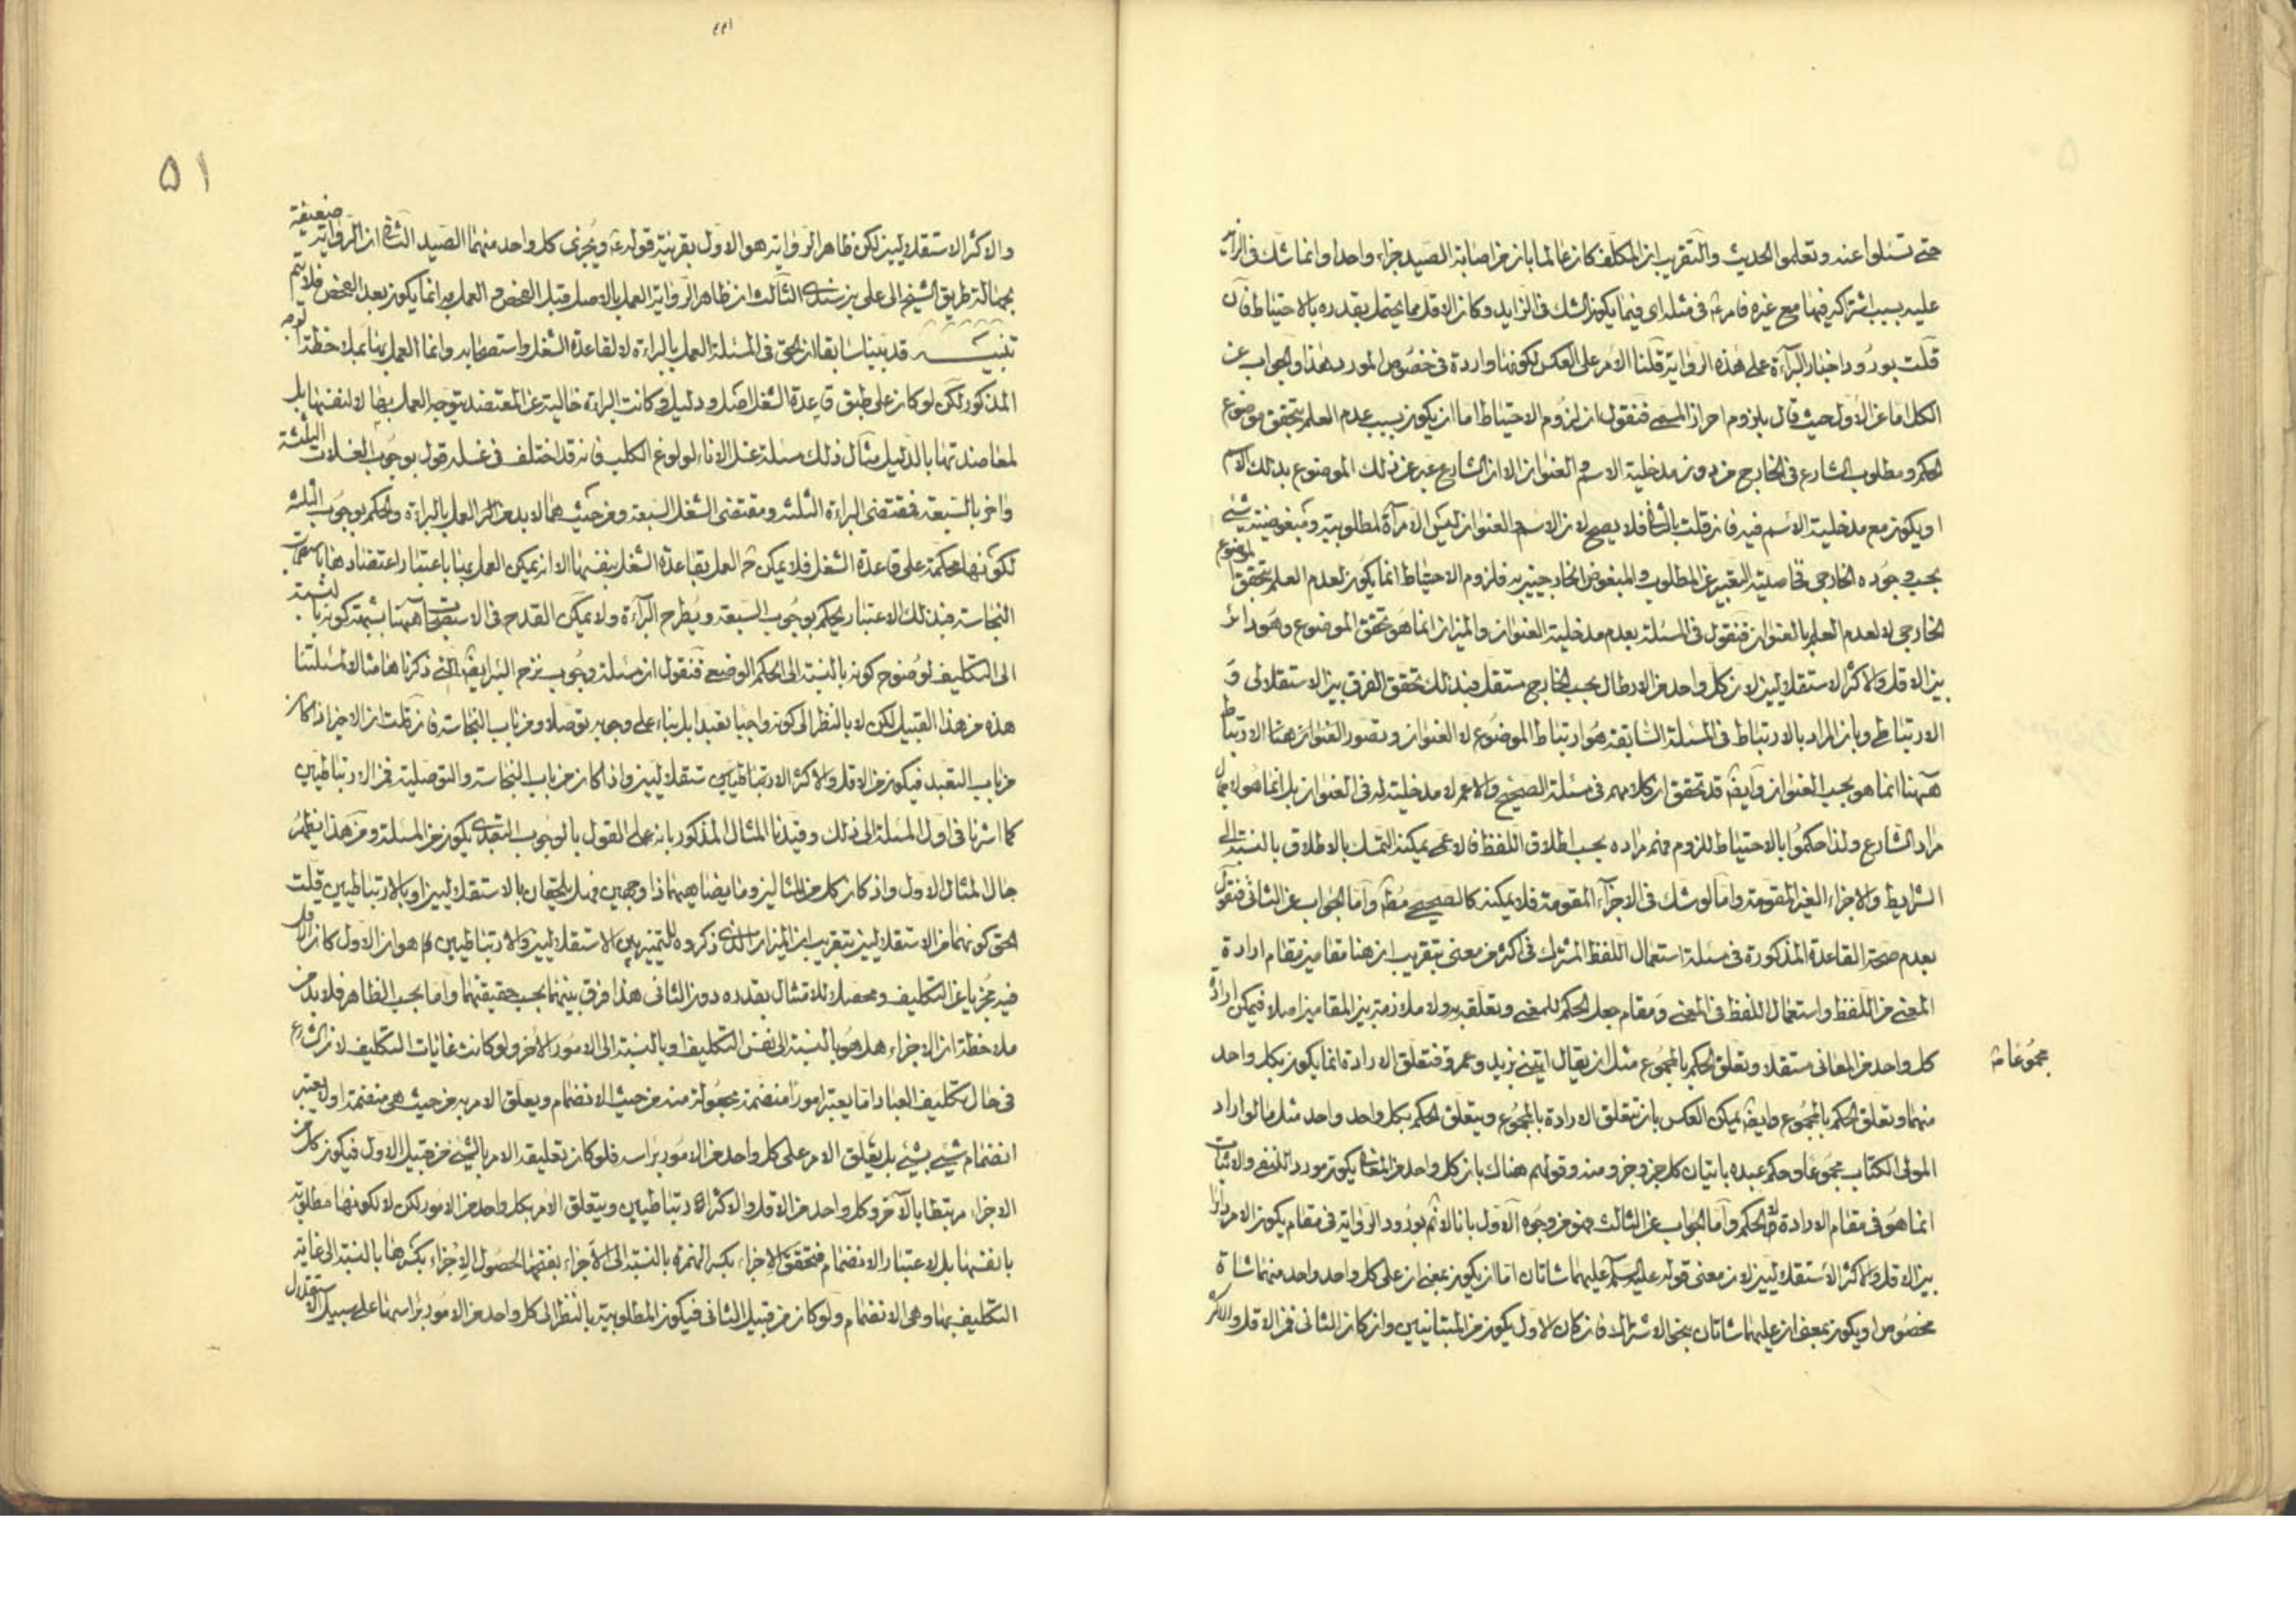 حتى تسئلوا عنه وتعلموا الحديث والتقريب ان المكلف كان عالما بان في اصابة الصيد جزاء واحدا وانما شك في الزائد
عليه بسبب اشتراكه فيها مع غيره فامر في مثله اي فيما يكون الشك في الزايد وكان الاقل مما يحتمل بقدره بالاحتياط فان
قلت بورود اخبار البراءة على هذه الرواية قلنا الامر على العكس لكونها واردة في خصوص المورد هذا والجواب عن
الكل اما عن الاول حيث قال بلزوم احراز المسمى فنقول ان لزوم الاحتياط اما ان يكون بسبب عدم العلم بتحقق موضوع
الحكم ومطلوب الشارع في الخارج من دون مدخلية الاسم والعنوان الا ان الشارع عبر عن ذلك الموضوع بذلك الاسم
او يكون مع مدخلية الاسم فيه فان قلت بالثاني فلا يصح لان الاسم والعنوان ليس الا مرآة لمطلوبية ومبغوضية شيء
بحسب وجوده الخارجي فخاصيته التعبير عن المطلوب والمبغوض الخارجيين به فلزوم الاحتياط انما يكون لعدم العلم بتحقق الموضوع
الخارجي لا لعدم العلم بالعنوان فنقول في المسئلة بعدم مدخلية العنوان والميزان انما هو تحقق الموضوع وهو دائر
بين الاقل والاكثر الاستقلاليين لان كل واحد من الارطال بحسب الخارج مستقل فبذلك تحقق الفرق بين الاستقلالي و
الارتباطي وبان المراد بالارتباط في المسئلة السابقة هو ارتباط الموضوع لا العنوان وتصور العنوان هنا الارتباط
ههنا انما هو بحسب العنوان وايضا قد تحقق ان كلامهم في مسئلة الصحيح والاعم لا مدخلية له في العنوان بل انما هو لاجمال
مراد الشارع ولذا حكموا بالاحتياط للزوم فهم مراده بحسب اطلاق اللفظ فالاعمى يمكنه التمسك بالاطلاق بالنسبة الى
الشرايط والاجزاء الغير المقومة واما لو شك في الاجزاء المقومة فلا يمكنه كالصحيحي مط واما الجواب عن الثاني فنقول
بعدم صحة القاعدة المذكورة في مسئلة استعمال اللفظ المشترك في اكثر من معنى بتقريب ان هنا مقامين مقام ارادة
المعنى من اللفظ واستعمال اللفظ في المعنى ومقام جعل الحكم للمعنى وتعلقه به ولا ملازمة بين المقامين اصلا فيمكن ارادة
كل واحد من المعاني مستقلا وتعلق الحكم بالمجموع مثل ان يقال ايتيني بزيد وعمرو فتعلق الارادة انما يكون بكل واحد
مجموعا منه
منهما وتعلق الحكم بالمجموع وايضا يمكن العكس بان تتعلق الارادة بالمجموع ويتعلق الحكم بكل واحد واحد مثل ما لو اراد
المولى الكتاب مجموعا وحكم عبده باتيان كل جزء وجزء منه وقولهم هناك بان كل واحد من المعاني يكون مورد النفي والاثبات
انما هو في مقام الارادة لا الحكم واما الجواب عن الثالث فهو من وجوه الاول بانا لا ثم بورود الرواية في مقام يكون الامر دائرا
بين الاقل والاكثر الاستقلاليين لان معنى قوله عليه السلام عليهما شاتان اما ان يكون بمعنى ان على كل واحد واحد منهما شاة
مخصوص او يكون بمعنى ان عليهما شاتان بنحو الاشتراك فان كان الاول يكون من المتبانيين وان كان الثاني فمن الاقل والاكثر
٥١
والاكثر الاستقلاليين لكن ظاهر الرواية هو الاول بقرينة قوله ع ويجزى كل واحد منهما الصيد الثاني ان الرواية ضعيفة
بجهالة طريق الشيخ الى علي بن سندي الثالث ان ظاهر الرواية العمل بالاصل قبل الفحص والعمل به انما يكون بعد الفحص فلا يتم
تنبيه قد بينا سابقا ان الحق في المسئلة العمل بالبراءة لا لقاعدة الشغل واستصحابه وانما العمل بها بملاحظة الوجه
المذكور لكن لو كان على طبق قاعدة الشغل اصل ودليل وكانت البراءة خالية عن المعتضد يتوجه العمل بها لا لنفسها بل
لمعاضدتها بالدليل مثال ذلك مسئلة غسل الاناء لولوغ الكلب فانه قد اختلف في غسله قول بوجوب الغسلات الثلثة
واخر بالسبعة فمقتضى البراءة الثلثة ومقتضى الشغل السبعة ومن حيث هما لابد من العمل بالبراءة والحكم بوجوب الثلثة
لكونها محكمة على قاعدة الشغل فلا يمكن ح العمل بقاعدة الشغل بنفسها الا ان يمكن العمل بها باعتبار اعتضادها باستصحاب
النجاسة فبذلك الاعتبار يحكم بوجوب السبعة ويطرح البراءة ولا يمكن القدح في الاستصحاب ههنا بشبهة كونه بالنسبة
الى التكليف لوضوح كونه بالنسبة الى الحكم الوضعي فنقول ان مسئلة وجوب نزح البئر ايضا التي ذكرنا هنا مثالا لمسئلتنا
هذه من هذا القبيل لكن لا بالنظر الى كونه واجبا تعبدا بل بناء على وجوبه توصلا ومن باب النجاسة فان قلت ان الاجزاء اذا كان
من باب التعبد فيكون من الاقل والاكثر الارتباطيين ستقلاليين واذا كان من باب النجاسة والتوصلية فمن الارتباطيين
كما اشرنا في اول المسئلة الى ذلك وقيدنا المثال المذكور بانه على القول بالوجوب التعبدي يكون من المسئلة ومن هذا يظهر
حال المثال الاول واذ كان كل من المثالين وما يضاهيهما ذا وجهين فهل يلحقان بالاستقلاليين او بالارتباطيين قلت
الحق كونهما من الاستقلاليين بتقريب ان الميزان الذي ذكروه للتميز بين الاستقلاليين والارتباطيين هو ان الاول كان الاقل
فيه مجزيا عن التكليف ومحصلا للامتثال بقدره دون الثاني هذا فرق بينهما بحسب حقيقتهما واما بحسب الظاهر فلابد من
ملاحظة ان الاجزاء هل هو بالنسبة الى نفس التكليف او بالنسبة الى الامور الاخر ولو كانت غايات التكليف لان الشارع
في حال تكليف العباد اما يعتبر امورا منضمة مجعولة منه من حيث الانضمام ويعلق الامر به من حيث هي منضمة او لم يعتبر
انضمام شيء بشيء بل يتعلق الامر على كل واحد من الامور براسه فلو كان تعليقه الامر بالشيء من قبيل الاول فيكون كل من
الاجزاء مرتبطا بالآخر وكل واحد من الاقل والاكثر ارتباطيين ويتعلق الامر بكل واحد من الامور لكن لا لكونها مطلوبة
بانفسها بل لاعتبار الانضمام فتحقق الاجزاء بكسر الهمزة بالنسبة الى الاجزاء بفتحها لحصول الاجزاء بكسرها بالنسبة الى غاية
التكليف بها وهي الانضمام ولو كان من قبيل الثاني فيكون المطلوبية بالنظر الى كل واحد من الامور براسها على سبيل الاستقلال